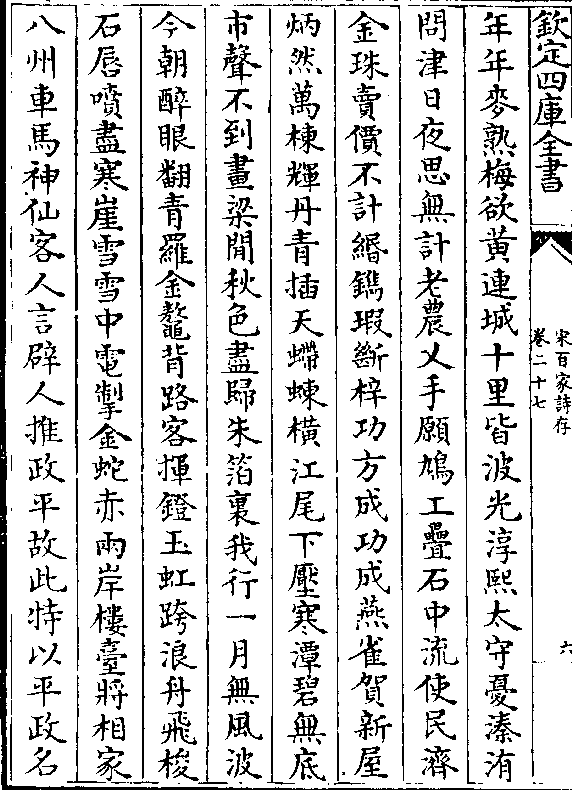 欽定四庫全書
宋百家詩存
卷二十七
六
年年麥熟梅欲黃連城十里皆波光淳熙太守憂溱洧
問津日夜思無計老農乂手願鳩工疊石中流使民濟
金珠賣價不計緡鐫瑕斷梓功方成功成燕雀賀新屋
炳然萬棟輝丹青插天螮蝀橫江尾下壓寒潭碧無底
市聲不到畫梁閒秋色盡歸朱箔裏我行一月無風波
今朝醉眼翻青羅金鼇背路客揮鐙玉虹跨浪舟飛梭
石唇噴盡寒崖雪雪中電掣金蛇赤兩岸樓臺將相家
八州車馬神仙客人言辟人推政平故此特以平政名